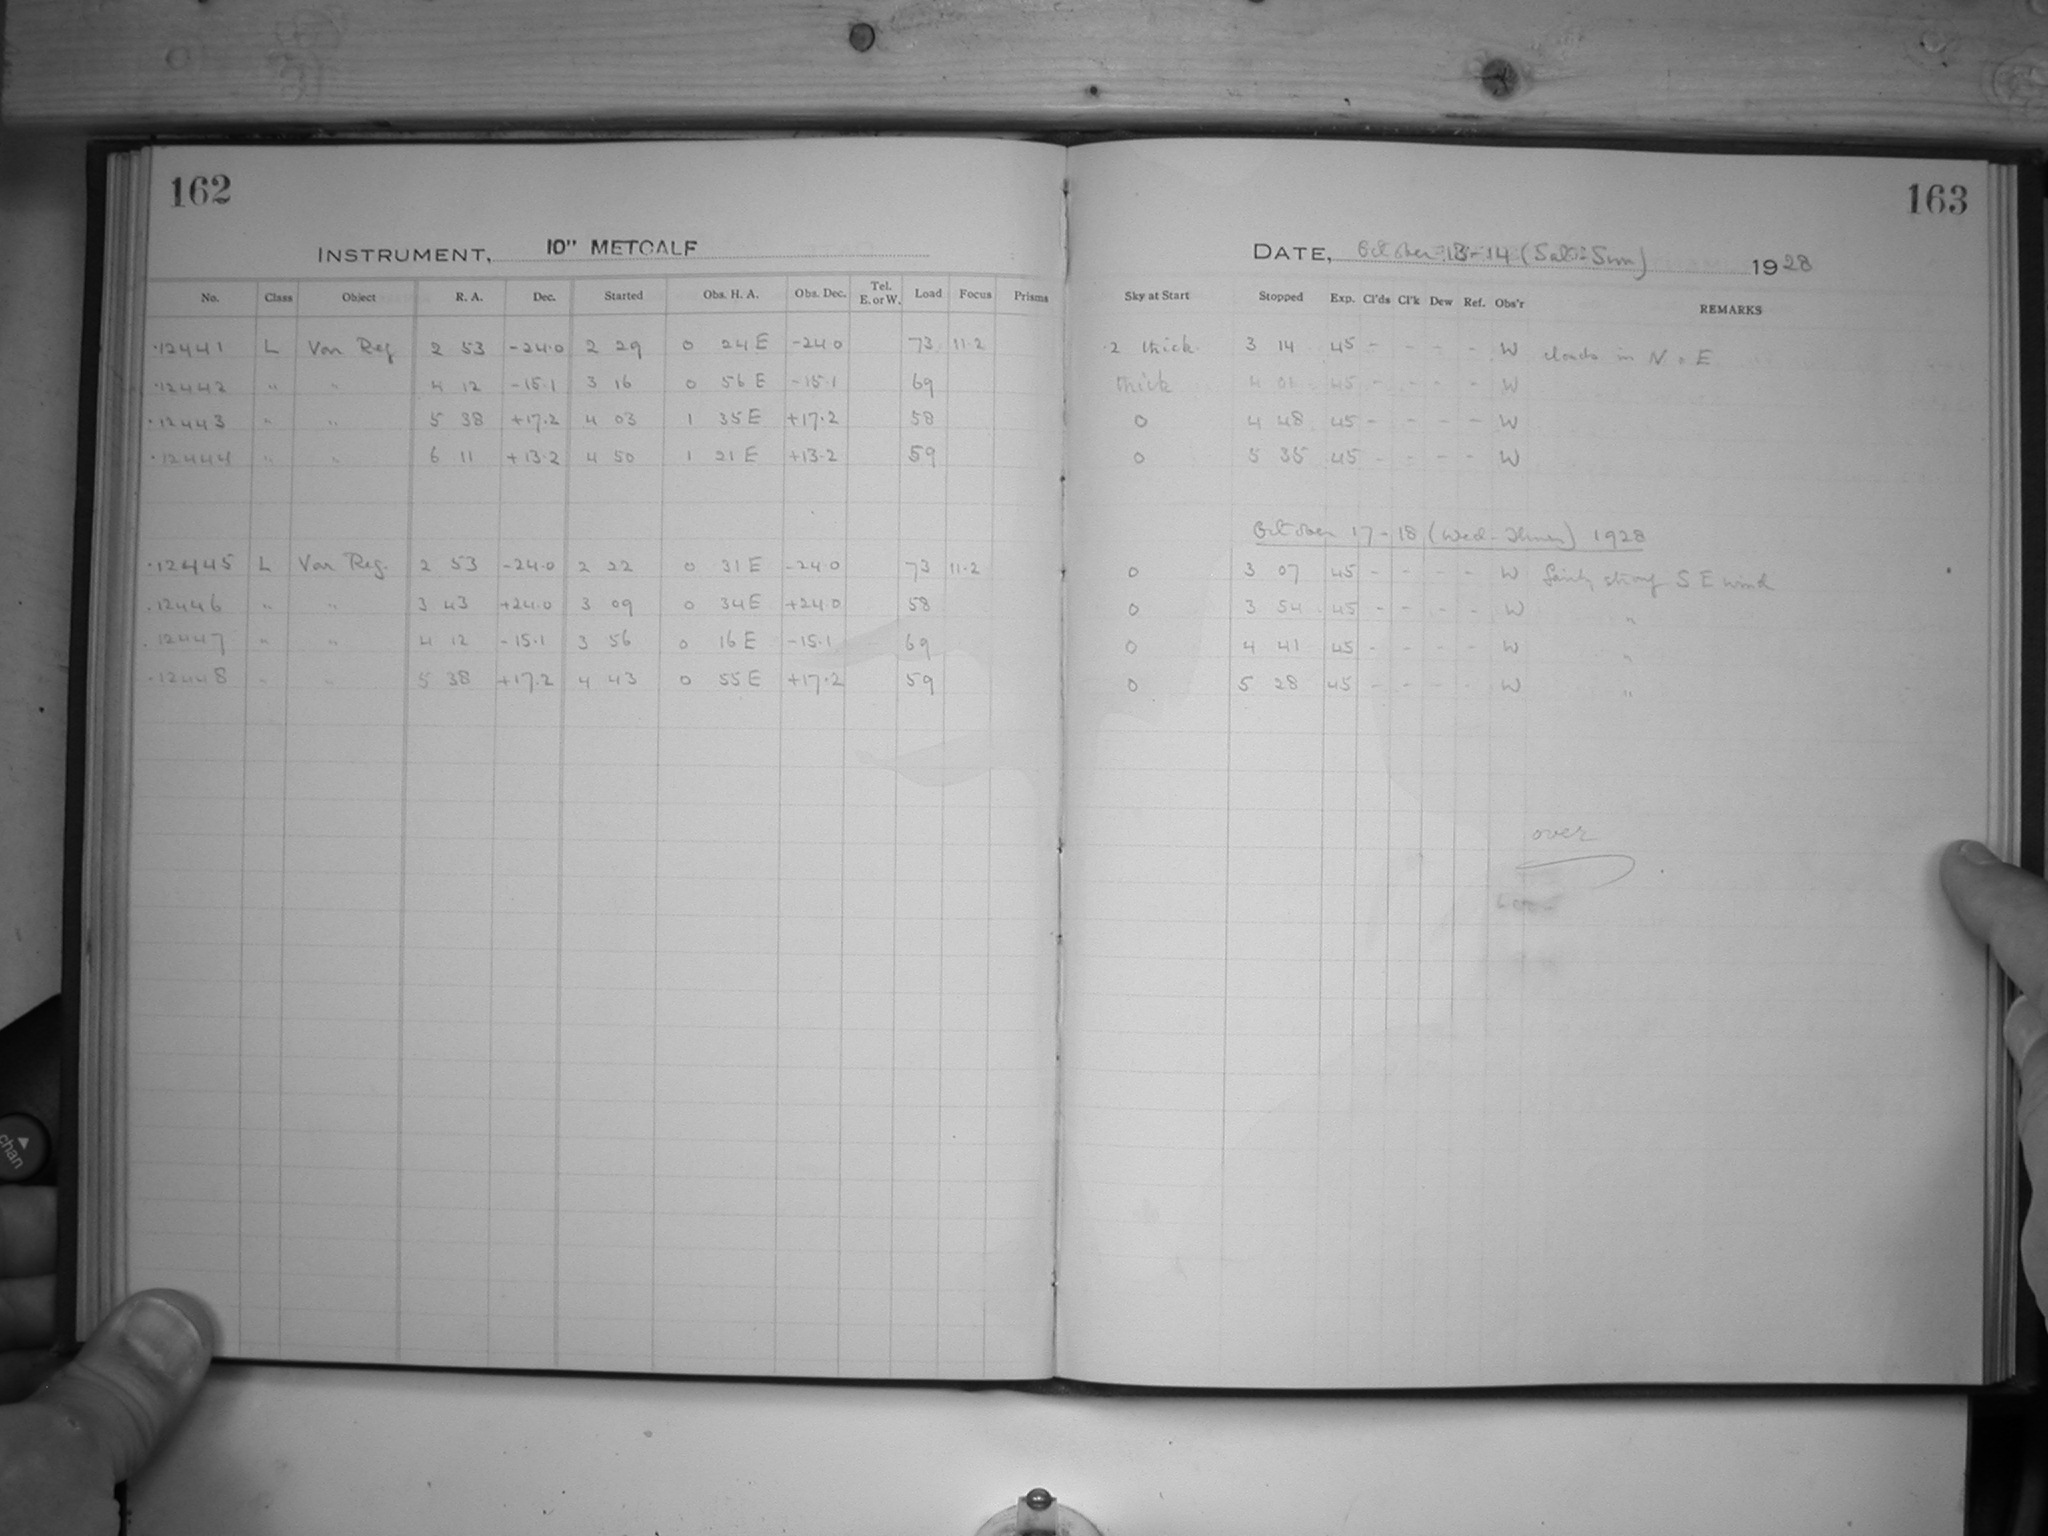 162
INSTRUMENT, 10" METCALF
No. Class Object R. A. Dec. Started Obs. H. A. Obs. Dec. Tel. E. or W. Load Focus Prisms
12441 L Var Reg 2 53 -24.0 2 29 0 24 E -24.0 73 11.2
12442 " " 4 12 -15.1 3 16 0 56 E -15.1 69
12443 " " 5 38 +17.2 4 03 1 35 E +17.2 58
12444 " " 6 11 +13.2 4 50 1 21 E +13.2 59
12445 L Var Reg. 2 53 -24.0 2 22 0 31 E -24.0 73 11.2
12446 " " 3 43 +24.0 3 09 0 34 E +24.0 58
12447 " " 4 12 -15.1 3 56 0 16 E -15.1 69
12448 " " 5 38 +17.2 4 43 0 55 E +17.2 59
163
DATE, October 13-14 (Sat-Sun) 1928
Sky at Start Stopped Exp. Cl'ds Cl'k Dew Ref. Obs'r REMARKS
2 thick 3 14 45 - - - - W clouds in N & E
thick 4 01 45 - - - - W
0 4 48 45 - - - - W
0 5 35 45 - - - - W
October 17-18 (Wed-Thur) 1928
0 3 07 45 - - - - W Fairly strong S E wind
0 3 54 45 - - - - W "
0 4 41 45 - - - - W "
0 5 28 45 - - - - W "
over
chan